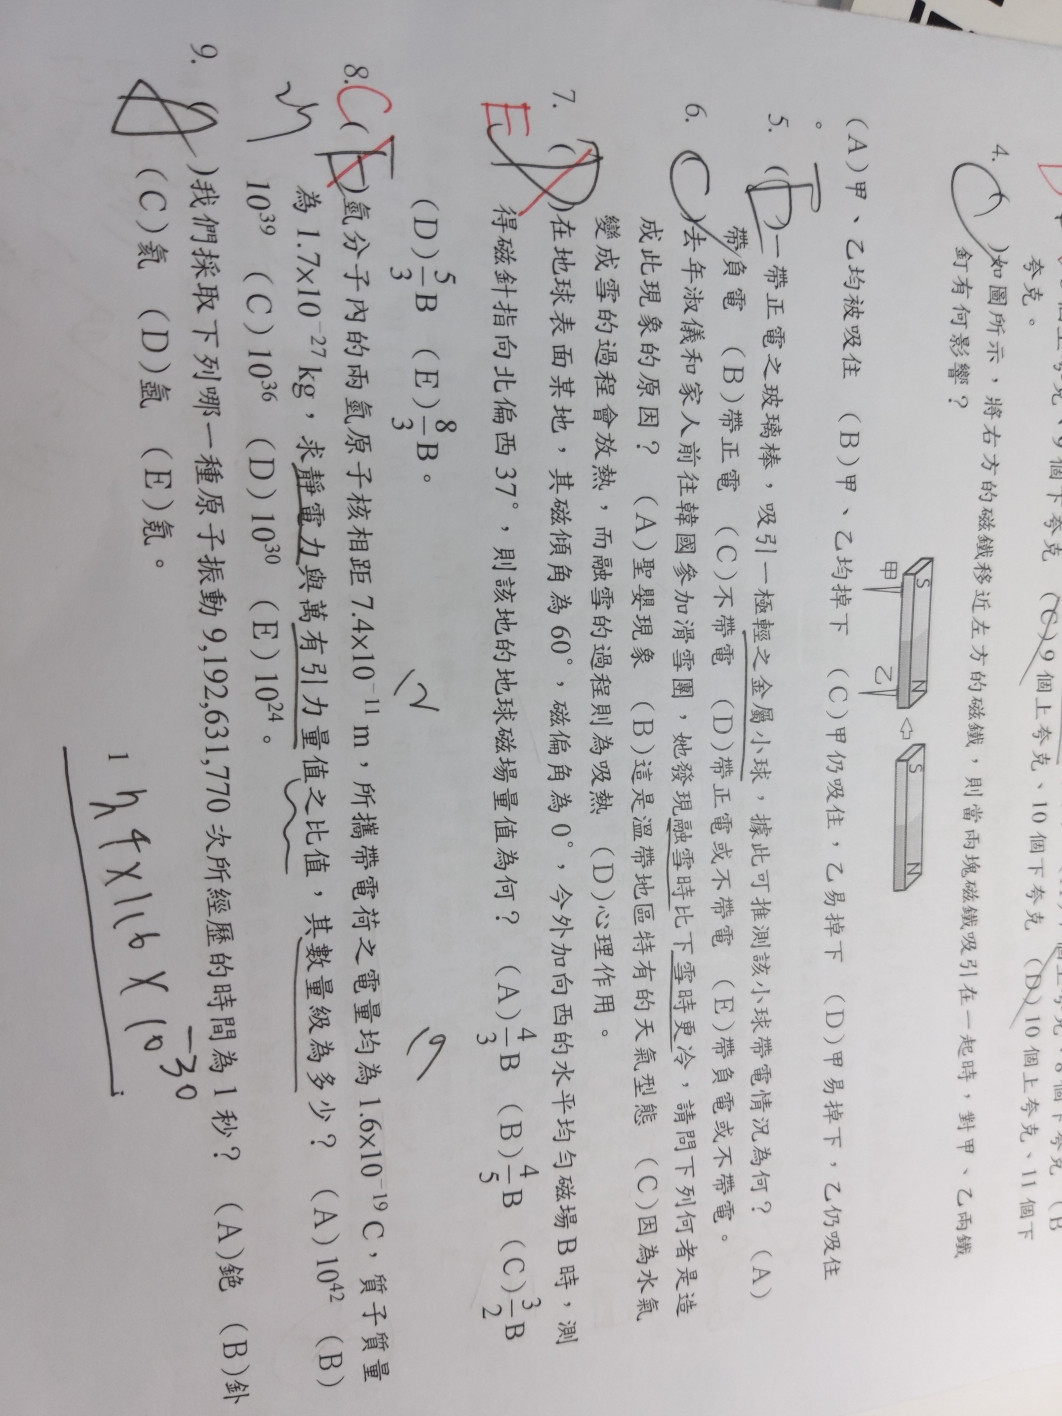 夸克。
個下夸克 (C)9個上夸克、10個下夸克 (D)10個上夸克、11個下
4. ( )如圖所示，將右方的磁鐵移近左方的磁鐵，則當兩塊磁鐵吸引在一起時，對甲、乙兩鐵
釘有何影響？
S N S N
甲 乙
(A)甲、乙均被吸住 (B)甲、乙均掉下 (C)甲仍吸住，乙易掉下 (D)甲易掉下，乙仍吸住
。
5. (E)一帶正電之玻璃棒，吸引一極輕之金屬小球，據此可推測該小球帶電情況為何？ (A)
帶負電 (B)帶正電 (C)不帶電 (D)帶正電或不帶電 (E)帶負電或不帶電。
6. (C)去年淑儀和家人前往韓國參加滑雪團，她發現融雪時比下雪時更冷，請問下列何者是造
成此現象的原因？ (A)聖嬰現象 (B)這是溫帶地區特有的天氣型態 (C)因為水氣
變成雪的過程會放熱，而融雪的過程則為吸熱 (D)心理作用。
7. ( )在地球表面某地，其磁傾角為60°，磁偏角為0°，今外加向西的水平均勻磁場B時，測
E 得磁針指向北偏西37°，則該地的地球磁場量值為何？ (A)4/3B (B)4/5B (C)3/2B
(D)5/3B (E)8/3B。
8. C (E)氫分子內的兩氫原子核相距7.4×10⁻¹¹m，所攜帶電荷之電量均為1.6×10⁻¹⁹C，質子質量
為1.7×10⁻²⁷kg，求靜電力與萬有引力量值之比值，其數量級為多少？ (A)10⁴² (B)
10³⁹ (C)10³⁶ (D)10³⁰ (E)10²⁴。
9. ( )我們採取下列哪一種原子振動9,192,631,770次所經歷的時間為1秒？ (A)銫 (B)釙
(C)氦 (D)氫 (E)氪。
1